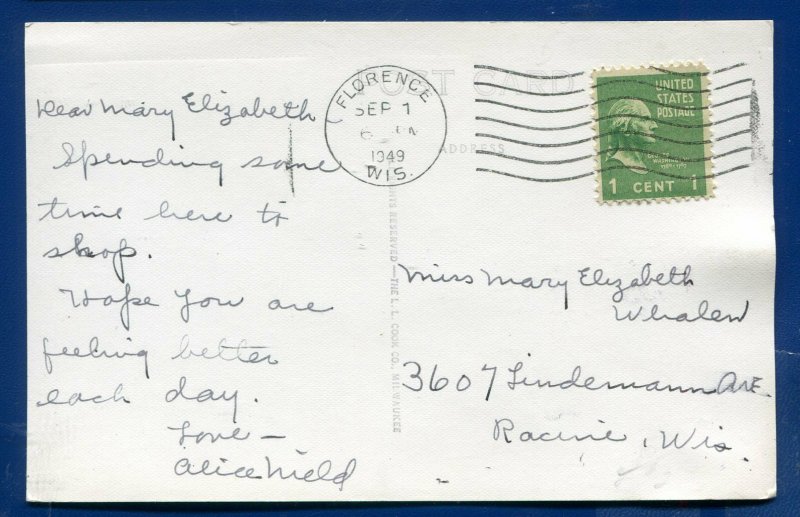 POST CARD
ADDRESS
FLORENCE
SEP 1
1949
WIS.
UNITED
STATES
POSTAGE
1 CENT 1
Dear Mary Elizabeth
Spending some
time here to
shop.
Hope you are
feeling better
each day.
Love —
Alice
RESERVED—THE L. L. COOK CO., MILWAUKEE
Miss Mary Elizabeth
Whalen
3607 Lindemann Ave.
Racine, Wis.